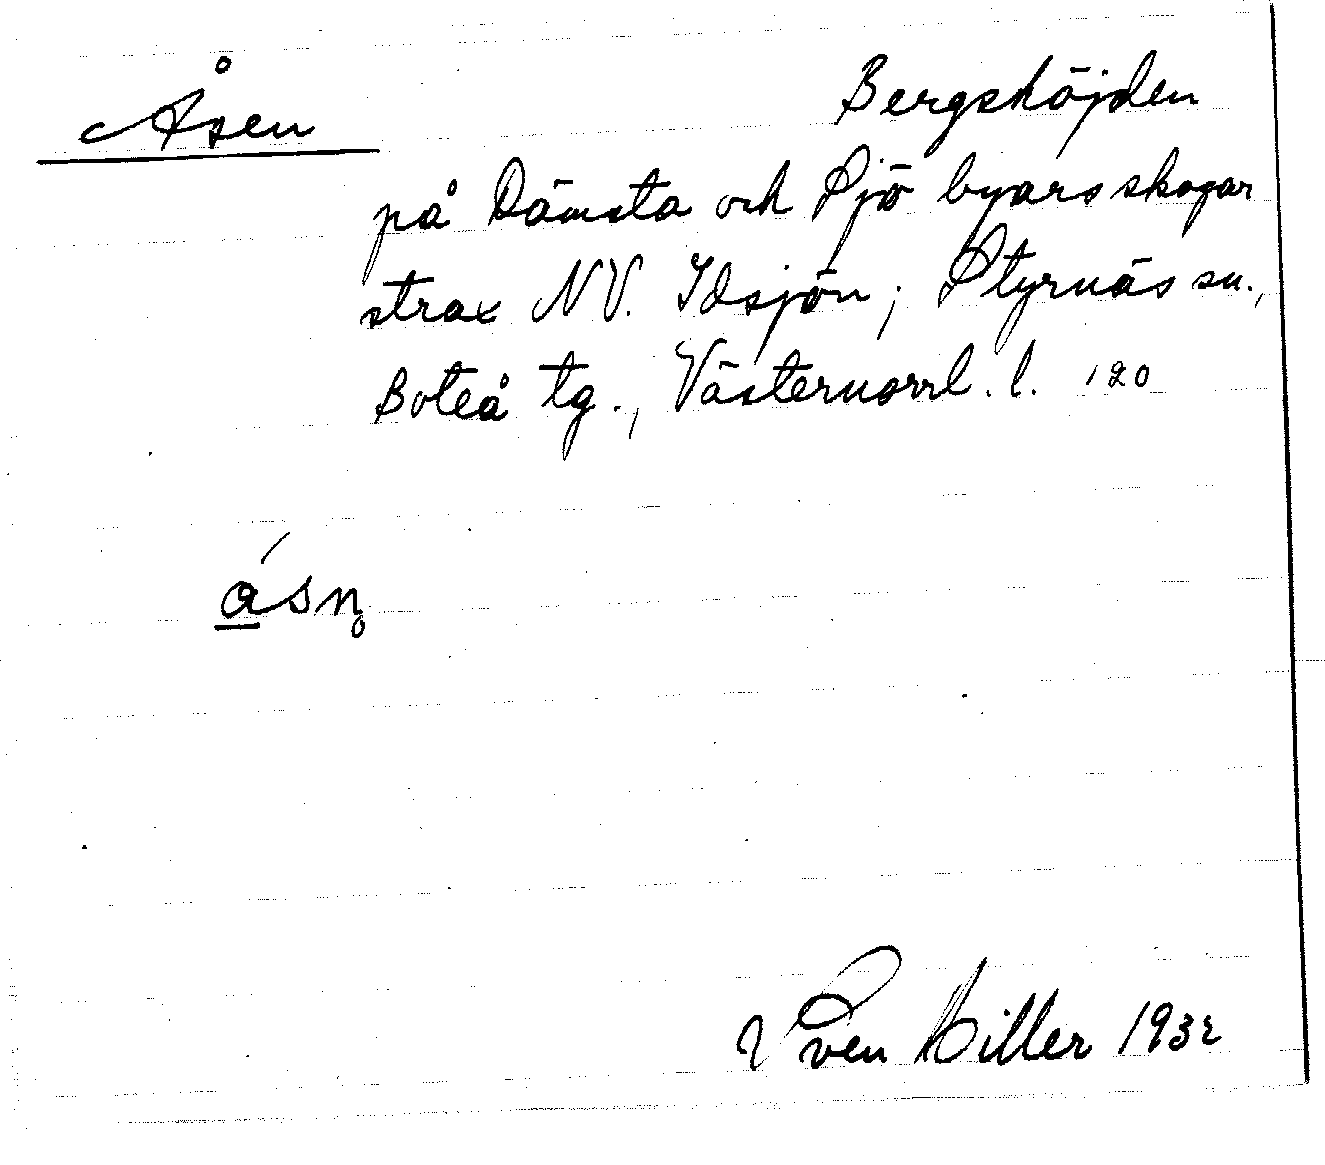 Åsen
Bergshöjden
på Dämsta och Sjö byars skogar
strax NV. Idsjön; Styrnäs sn.,
Boteå tg., Västernorrl. l. 120
ásn̥
Sven Hiller 1932